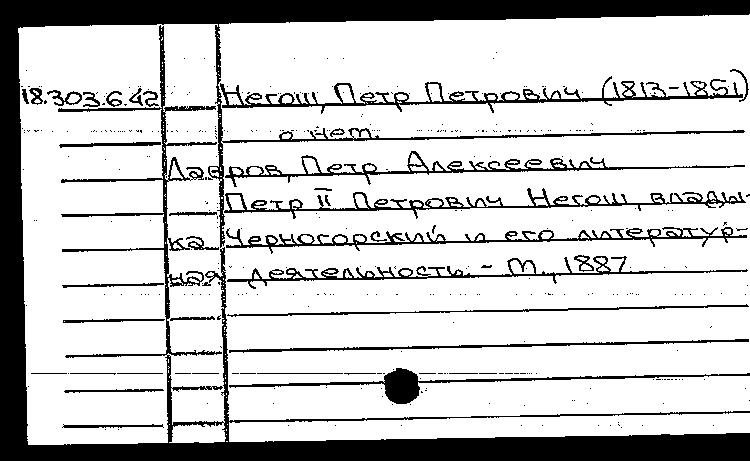 18.303.6.42 Негош, Петр Петрович (1813-1851)
о нем.
Лавров, Петр Алексеевич
Петр II Петрович Негош, влады-
ка Черногорский и его литератур-
ная деятельность. - М., 1887